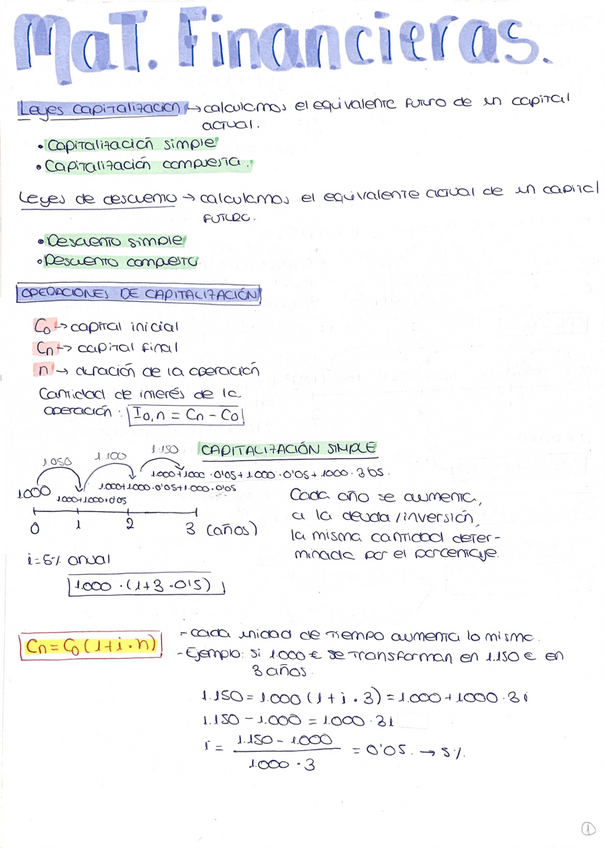 MaT. Financieras.
Leyes capitalización → calculamos el equivalente futuro de un capital
actual.
• Capitalización simple
• Capitalización compuesta.
Leyes de descuento → calculamos el equivalente actual de un capital
futuro.
• Descuento simple
• Descuento compuesto
OPERACIONES DE CAPITALIZACIÓN
C₀ → capital inicial
Cn → capital final
n → duración de la operación
Cantidad de interés de la
operación: I₀,n = Cn - C₀
CAPITALIZACIÓN SIMPLE
1050 1100 1.150
1000+1000·0'05+1000·0'05+1000·3'05.
1000 1000+1000·0'05+1000·0'05
1000+1000·0'05
0 1 2 3 (años)
Cada año se aumenta,
a la deuda/inversión,
la misma cantidad deter-
minada por el porcentaje.
i=5% anual
1.000·(1+3·0'5)
Cn = C₀(1+i·n)
- Cada unidad de tiempo aumenta lo mismo.
- Ejemplo: Si 1000€ se transforman en 1.150€ en
3 años.
1.150 = 1.000(1+i·3) = 1.000+1000·3i
1.150 - 1.000 = 1.000·3i
i = 1.150 - 1.000 / 1.000·3 = 0'05. → 5%.
1